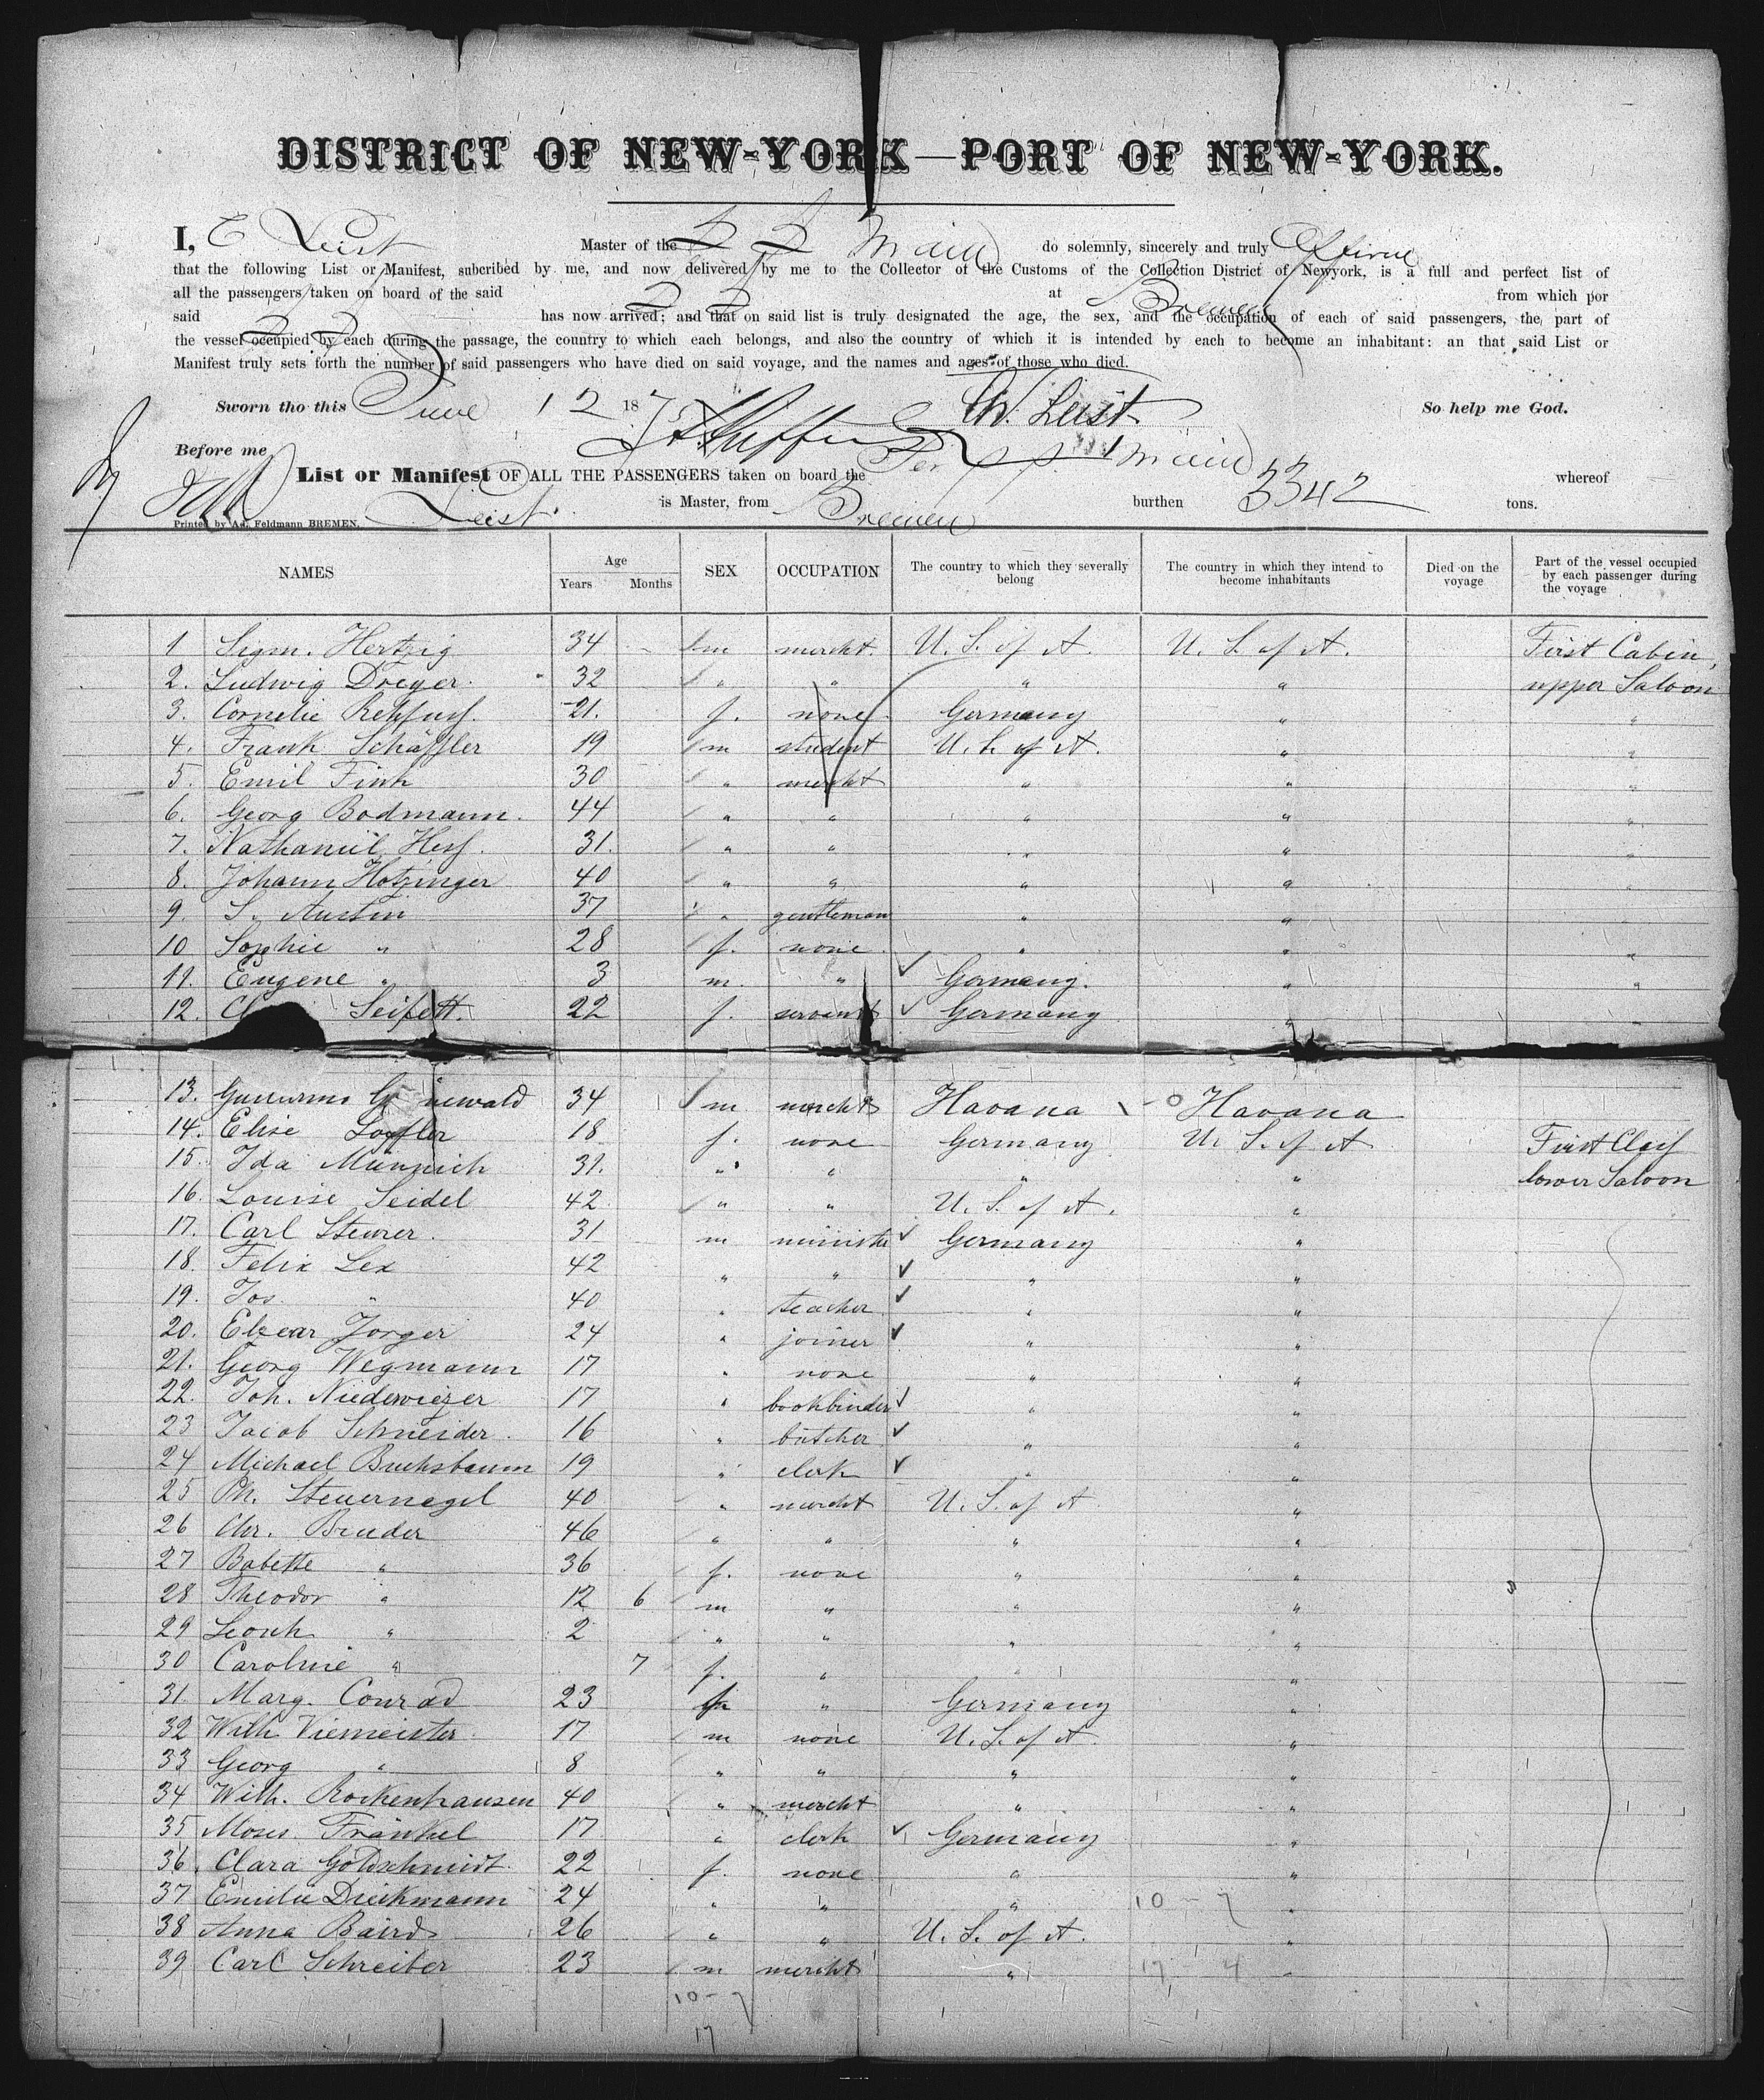 DISTRICT OF NEW-YORK—PORT OF NEW-YORK.
I, C Leist Master of the S S Main do solemnly, sincerely and truly Affirm
that the following List or Manifest, subcribed by me, and now delivered by me to the Collector of the Customs of the Collection District of Newyork, is a full and perfect list of
all the passengers taken on board of the said S S at Bremen from which por
said S S has now arrived; and that on said list is truly designated the age, the sex, and the occupation of each of said passengers, the part of
the vessel occupied by each during the passage, the country to which each belongs, and also the country of which it is intended by each to become an inhabitant: an that said List or
Manifest truly sets forth the number of said passengers who have died on said voyage, and the names and ages of those who died.
Sworn tho this June 12 187 Ch. Leist So help me God.
Before me
List or Manifest OF ALL THE PASSENGERS taken on board the Main whereof
Leist is Master, from Bremen burthen 3342 tons.
Printed by Ad. Feldmann BREMEN.
NAMES Age Years Months SEX OCCUPATION The country to which they severally belong The country in which they intend to become inhabitants Died on the voyage Part of the vessel occupied by each passenger during the voyage
1 Sigm. Hertzig 34 m mercht. U. S. of A. U. S. of A. First Cabin,
2. Ludwig Dreyer. 32 " " " " upper Saloon
3. Cornelie Rehfuss. 21. f. none Germany " "
4. Frank Schäffler 19 m student U. S. of A. " "
5. Emil Fink 30 " mercht " " "
6. Georg Bodmann. 44 " " " " "
7. Nathaniel Hess. 31. " " " " "
8. Johann Hotzinger 40 " " " " "
9. S. Austin 37 " gentleman " " "
10 Sophie " 28 f. none " " "
11. Eugene " 3 m. " Germany. " "
12. Seifett. 22 f. servant Germany "
13. 34 m mercht Havana Havana
14. Elise Löffler 18 f. none Germany U. S. of A First Class
15. Ida Münnich 31. " " " " lower Saloon
16. Louise Seidel 42 " " U. S. of A. "
17. Carl Steurer. 31 m minister Germany "
18. Felix Lex 42 " " " "
19. Jos. " 40 " teacher " "
20. Elzear Jorger 24 " joiner " "
21. Georg Wegmann 17 " none " "
22. Joh. Niederwieser 17 " bookbinder " "
23 Jacob Schneider. 16 " butcher " "
24 Michael Buchsbaum 19 " clerk " "
25 Ph. Steuernagel 40 " mercht U. S. of A "
26 Chr. Bruder 46 " " " "
27 Babette " 36 f. none " "
28 Theodor " 12 6 m " " "
29 Leonh " 2 " " " "
30 Caroline " 7 f. " " "
31. Marg. Conrad 23 f " Germany "
32 Wilh Viemeister 17 m none U. S. of A. "
33 Georg " 8 " " " "
34 Wilh. Rockenhausen 40 " mercht " "
35 Moses Fränkel 17 " clerk Germany "
36. Clara Goldschmidt. 22 f. none " "
37 Emilie Dieckmann 24 " " " 10 - 7 "
38 Anna Baird 26 " " U. S. of A. "
39 Carl Schreiber 23 m mercht " 17 4 "
10 - 7
17